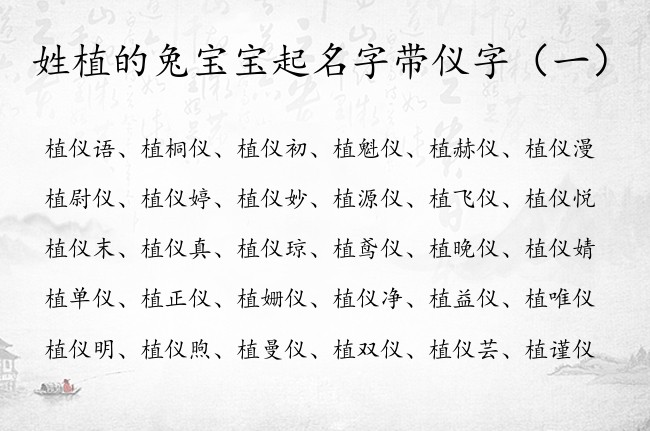 姓植的兔宝宝起名字带仪字（一）
植仪语、植桐仪、植仪初、植魁仪、植赫仪、植仪漫
植尉仪、植仪婷、植仪妙、植源仪、植飞仪、植仪悦
植仪末、植仪真、植仪琼、植鸢仪、植晚仪、植仪婧
植单仪、植正仪、植姗仪、植仪净、植益仪、植唯仪
植仪明、植仪煦、植曼仪、植双仪、植仪芸、植谨仪